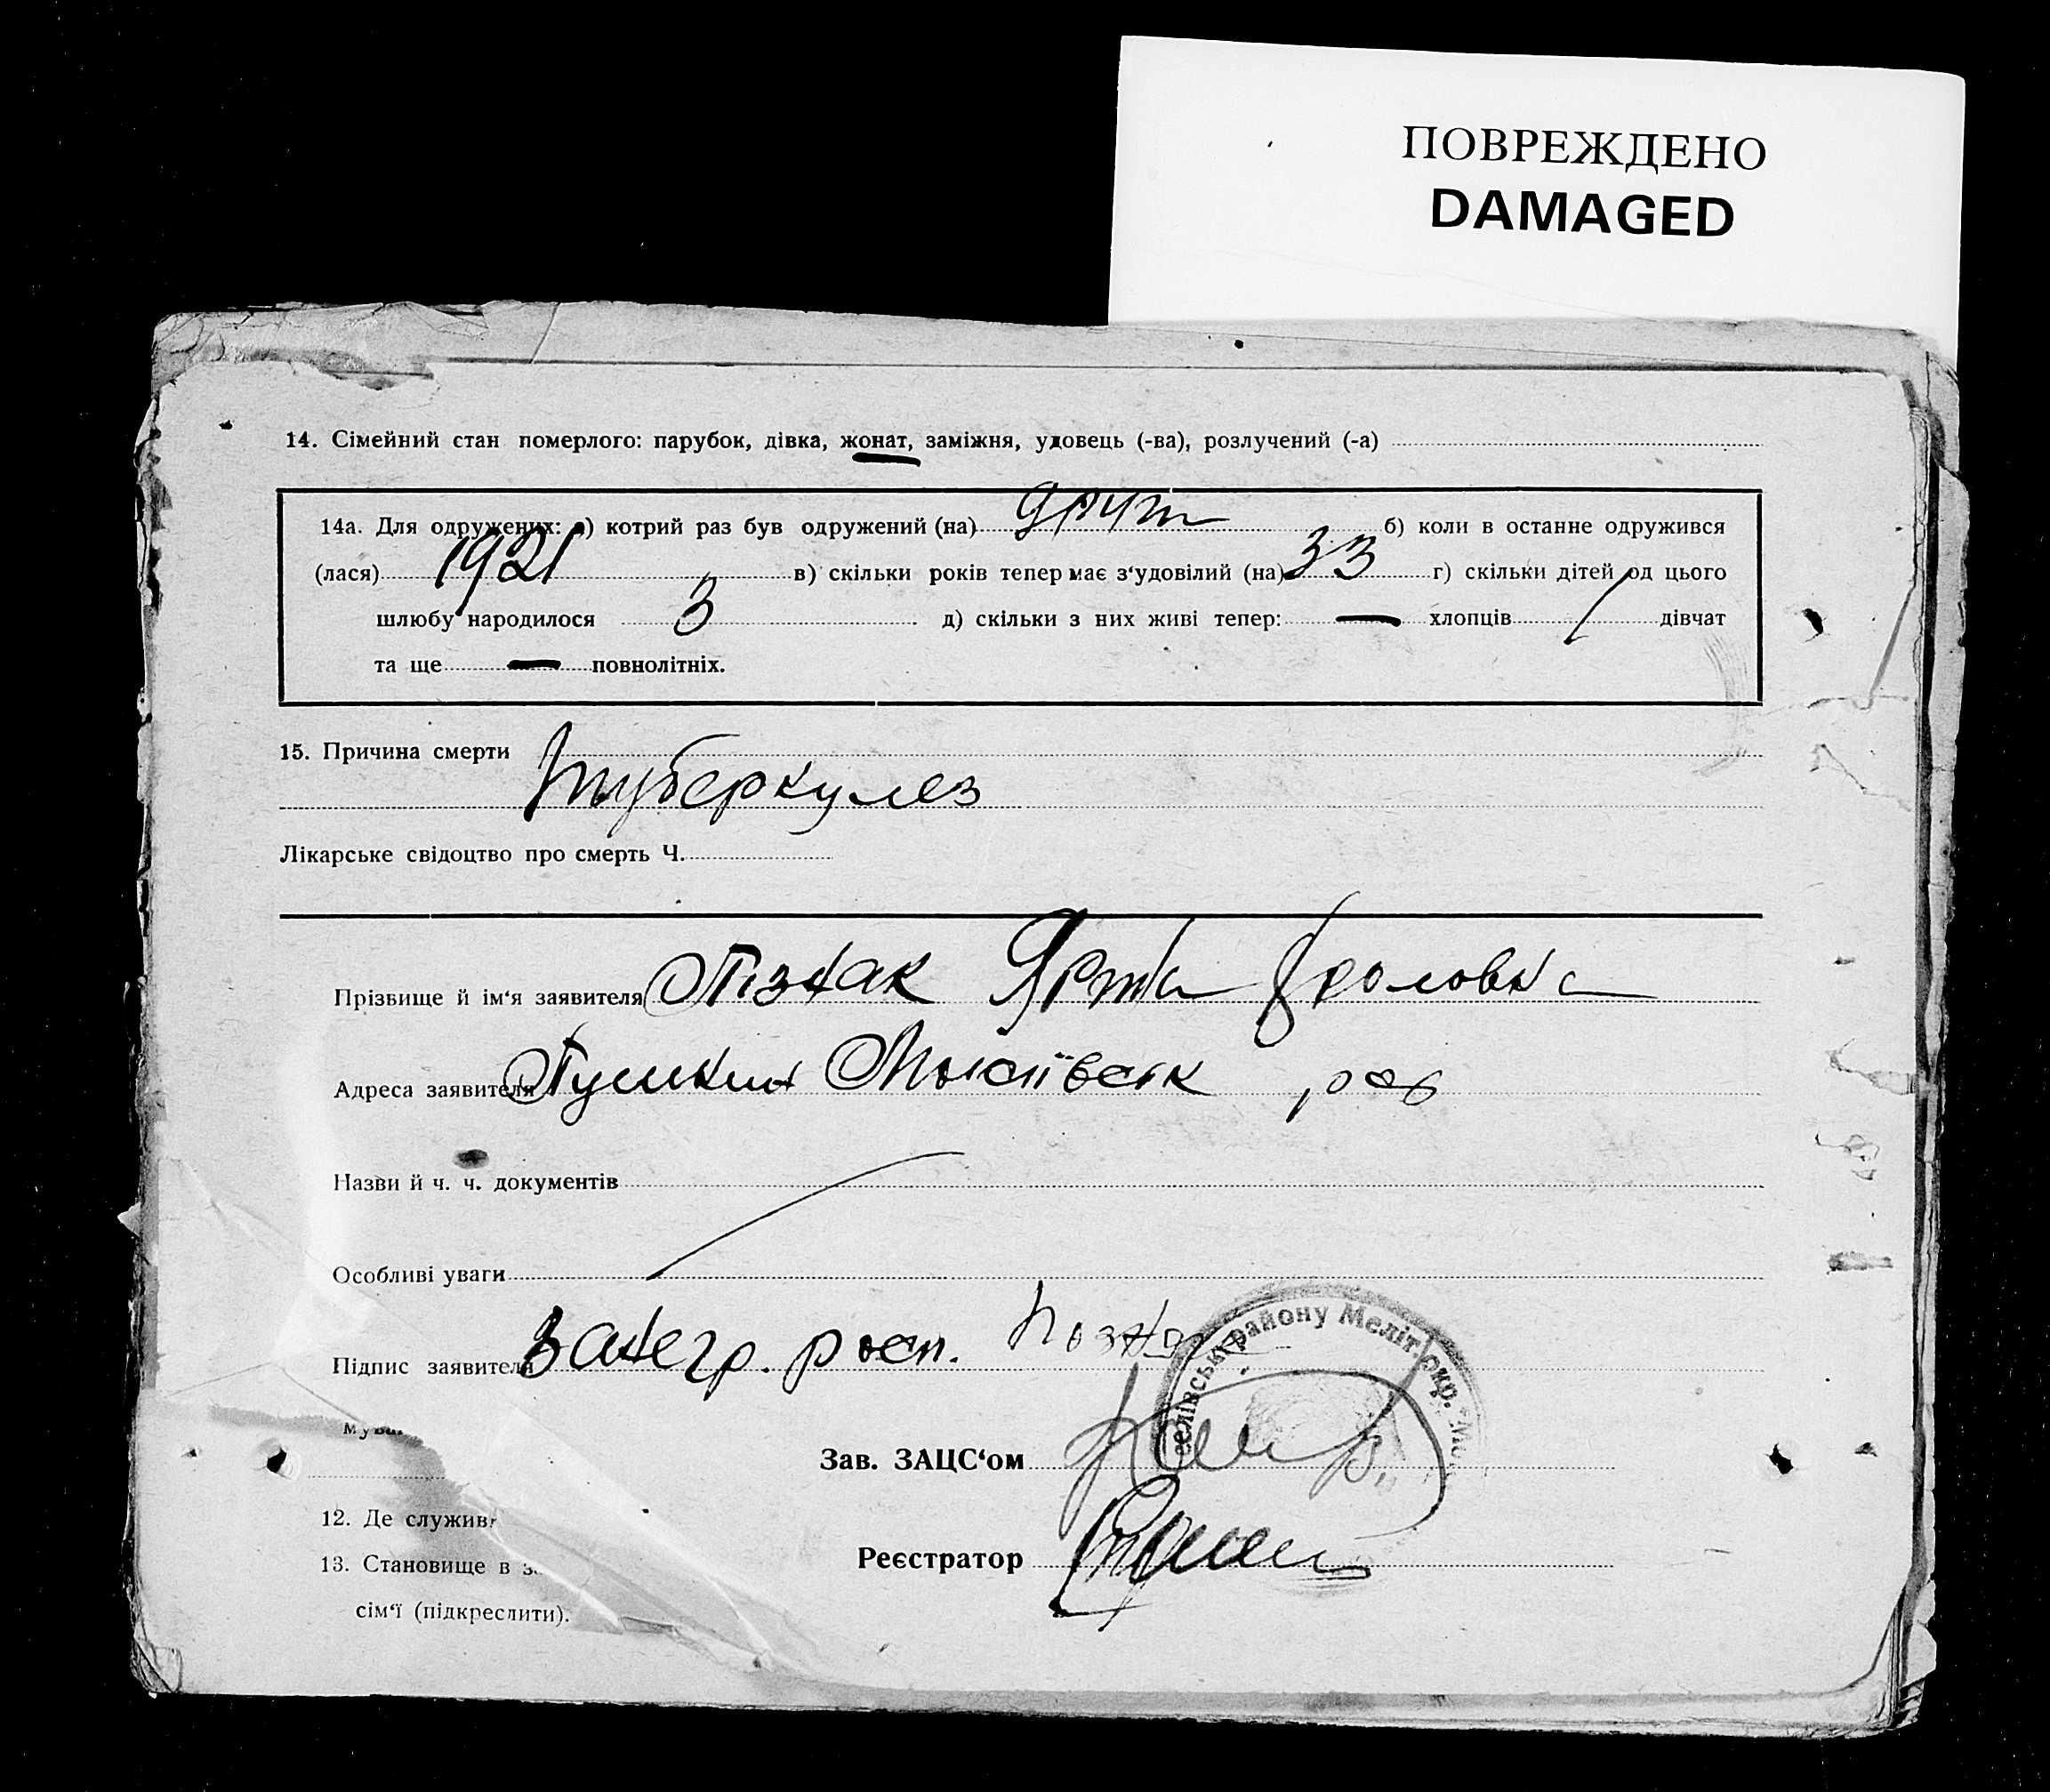 ПОВРЕЖДЕНО
DAMAGED
14. Сімейний стан померлого: парубок, дівка, жонат, заміжня, удовець (-ва), розлучений (-а)
14а. Для одружених: а) котрий раз був одружений (на) друг б) коли в останне одружився
(лася) 1921 в) скільки років тепер має з‘удовілий (на) 33 г) скільки дітей од цього
шлюбу народилося 3 д) скільки з них живі тепер: — хлопців 1 дівчат
та ще — повнолітніх.
15. Причина смерти
туберкулез
Лікарське свідоцтво про смерть Ч.
Прізвище й ім‘я заявителя Фроловна
Адреса заявителя Пушкин
Назви й ч. ч. документів
Особливі уваги
Підпис заявителя
району Меліт. окр.
Зав. ЗАЦС‘ом
12. Де служив
Реєстратор
13. Становище в з
сім‘ї (підкреслити).